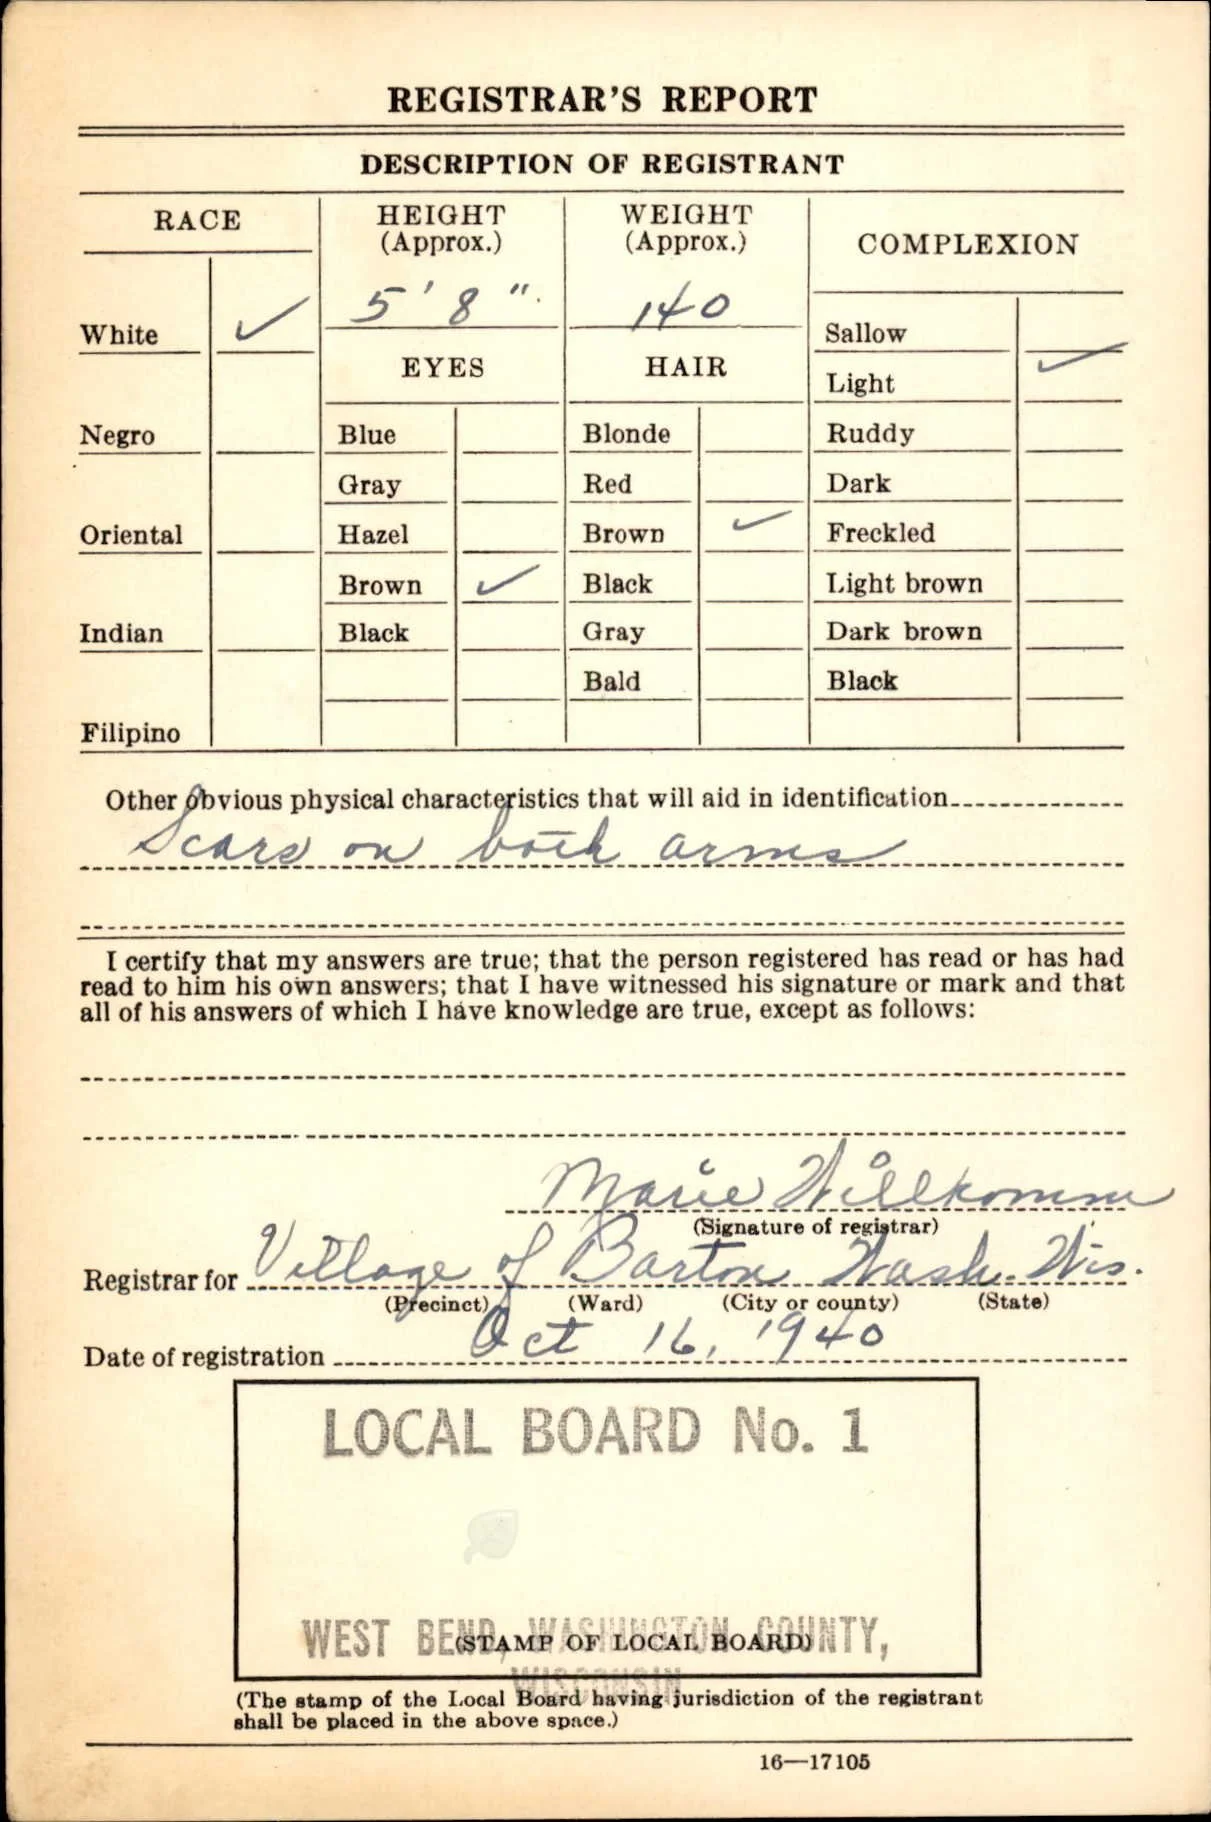 REGISTRAR'S REPORT
DESCRIPTION OF REGISTRANT
RACE
HEIGHT
(Approx.)
WEIGHT
(Approx.)
COMPLEXION
5' 8"
140
White ✓
Sallow
EYES
HAIR
Light ✓
Negro
Blue
Blonde
Ruddy
Gray
Red
Dark
Oriental
Hazel
Brown ✓
Freckled
Brown ✓
Black
Light brown
Indian
Black
Gray
Dark brown
Bald
Black
Filipino
Other obvious physical characteristics that will aid in identification
Scars on both arms
I certify that my answers are true; that the person registered has read or has had
read to him his own answers; that I have witnessed his signature or mark and that
all of his answers of which I have knowledge are true, except as follows:
Marie Willkomm
(Signature of registrar)
Registrar for Village of Barton Wash. Wis.
(Precinct) (Ward) (City or county) (State)
Date of registration Oct 16, 1940
LOCAL BOARD No. 1
WEST BEND, WASHINGTON COUNTY,
(STAMP OF LOCAL BOARD)
WISCONSIN
(The stamp of the Local Board having jurisdiction of the registrant
shall be placed in the above space.)
16—17105